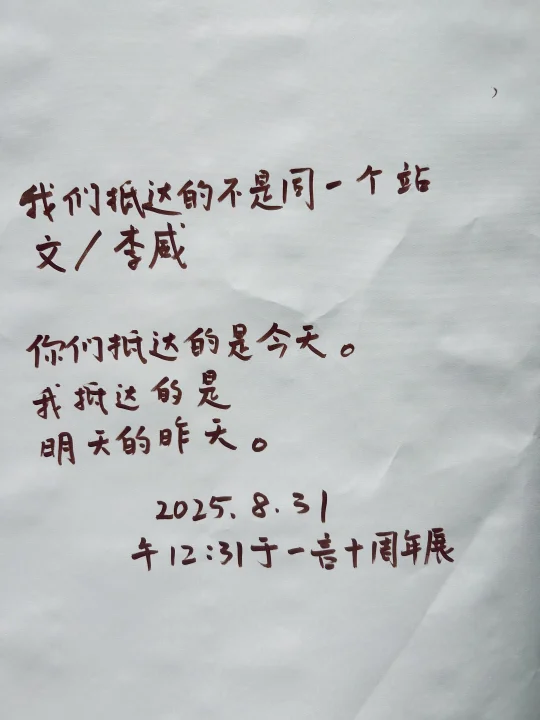 我们抵达的不是同一个站
文/李威
你们抵达的是今天。
我抵达的是
明天的昨天。
2025.8.31
午12:31于一言十周年展